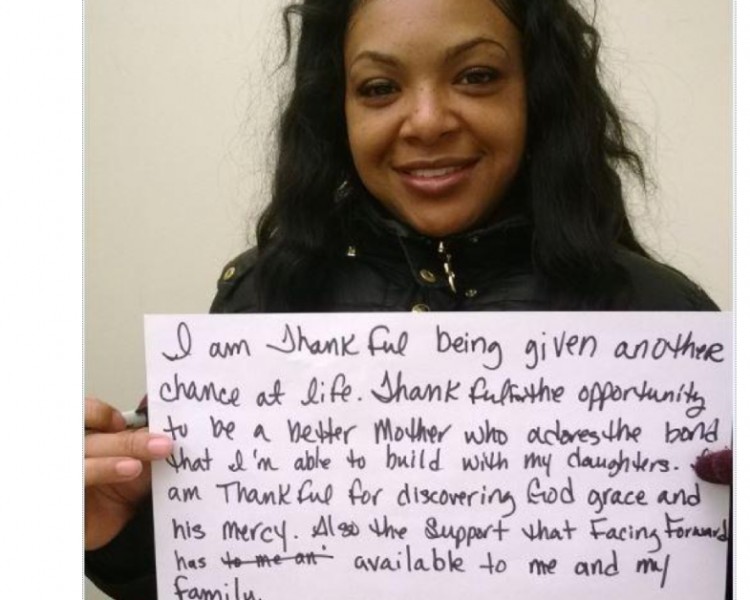 I am Thankful being given another
chance at life. Thankful for the opportunity
to be a better Mother who adores the bond
that I'm able to build with my daughters. I
am Thankful for discovering God grace and
his mercy. Also the Support that Facing Forward
has to me an available to me and my
family.